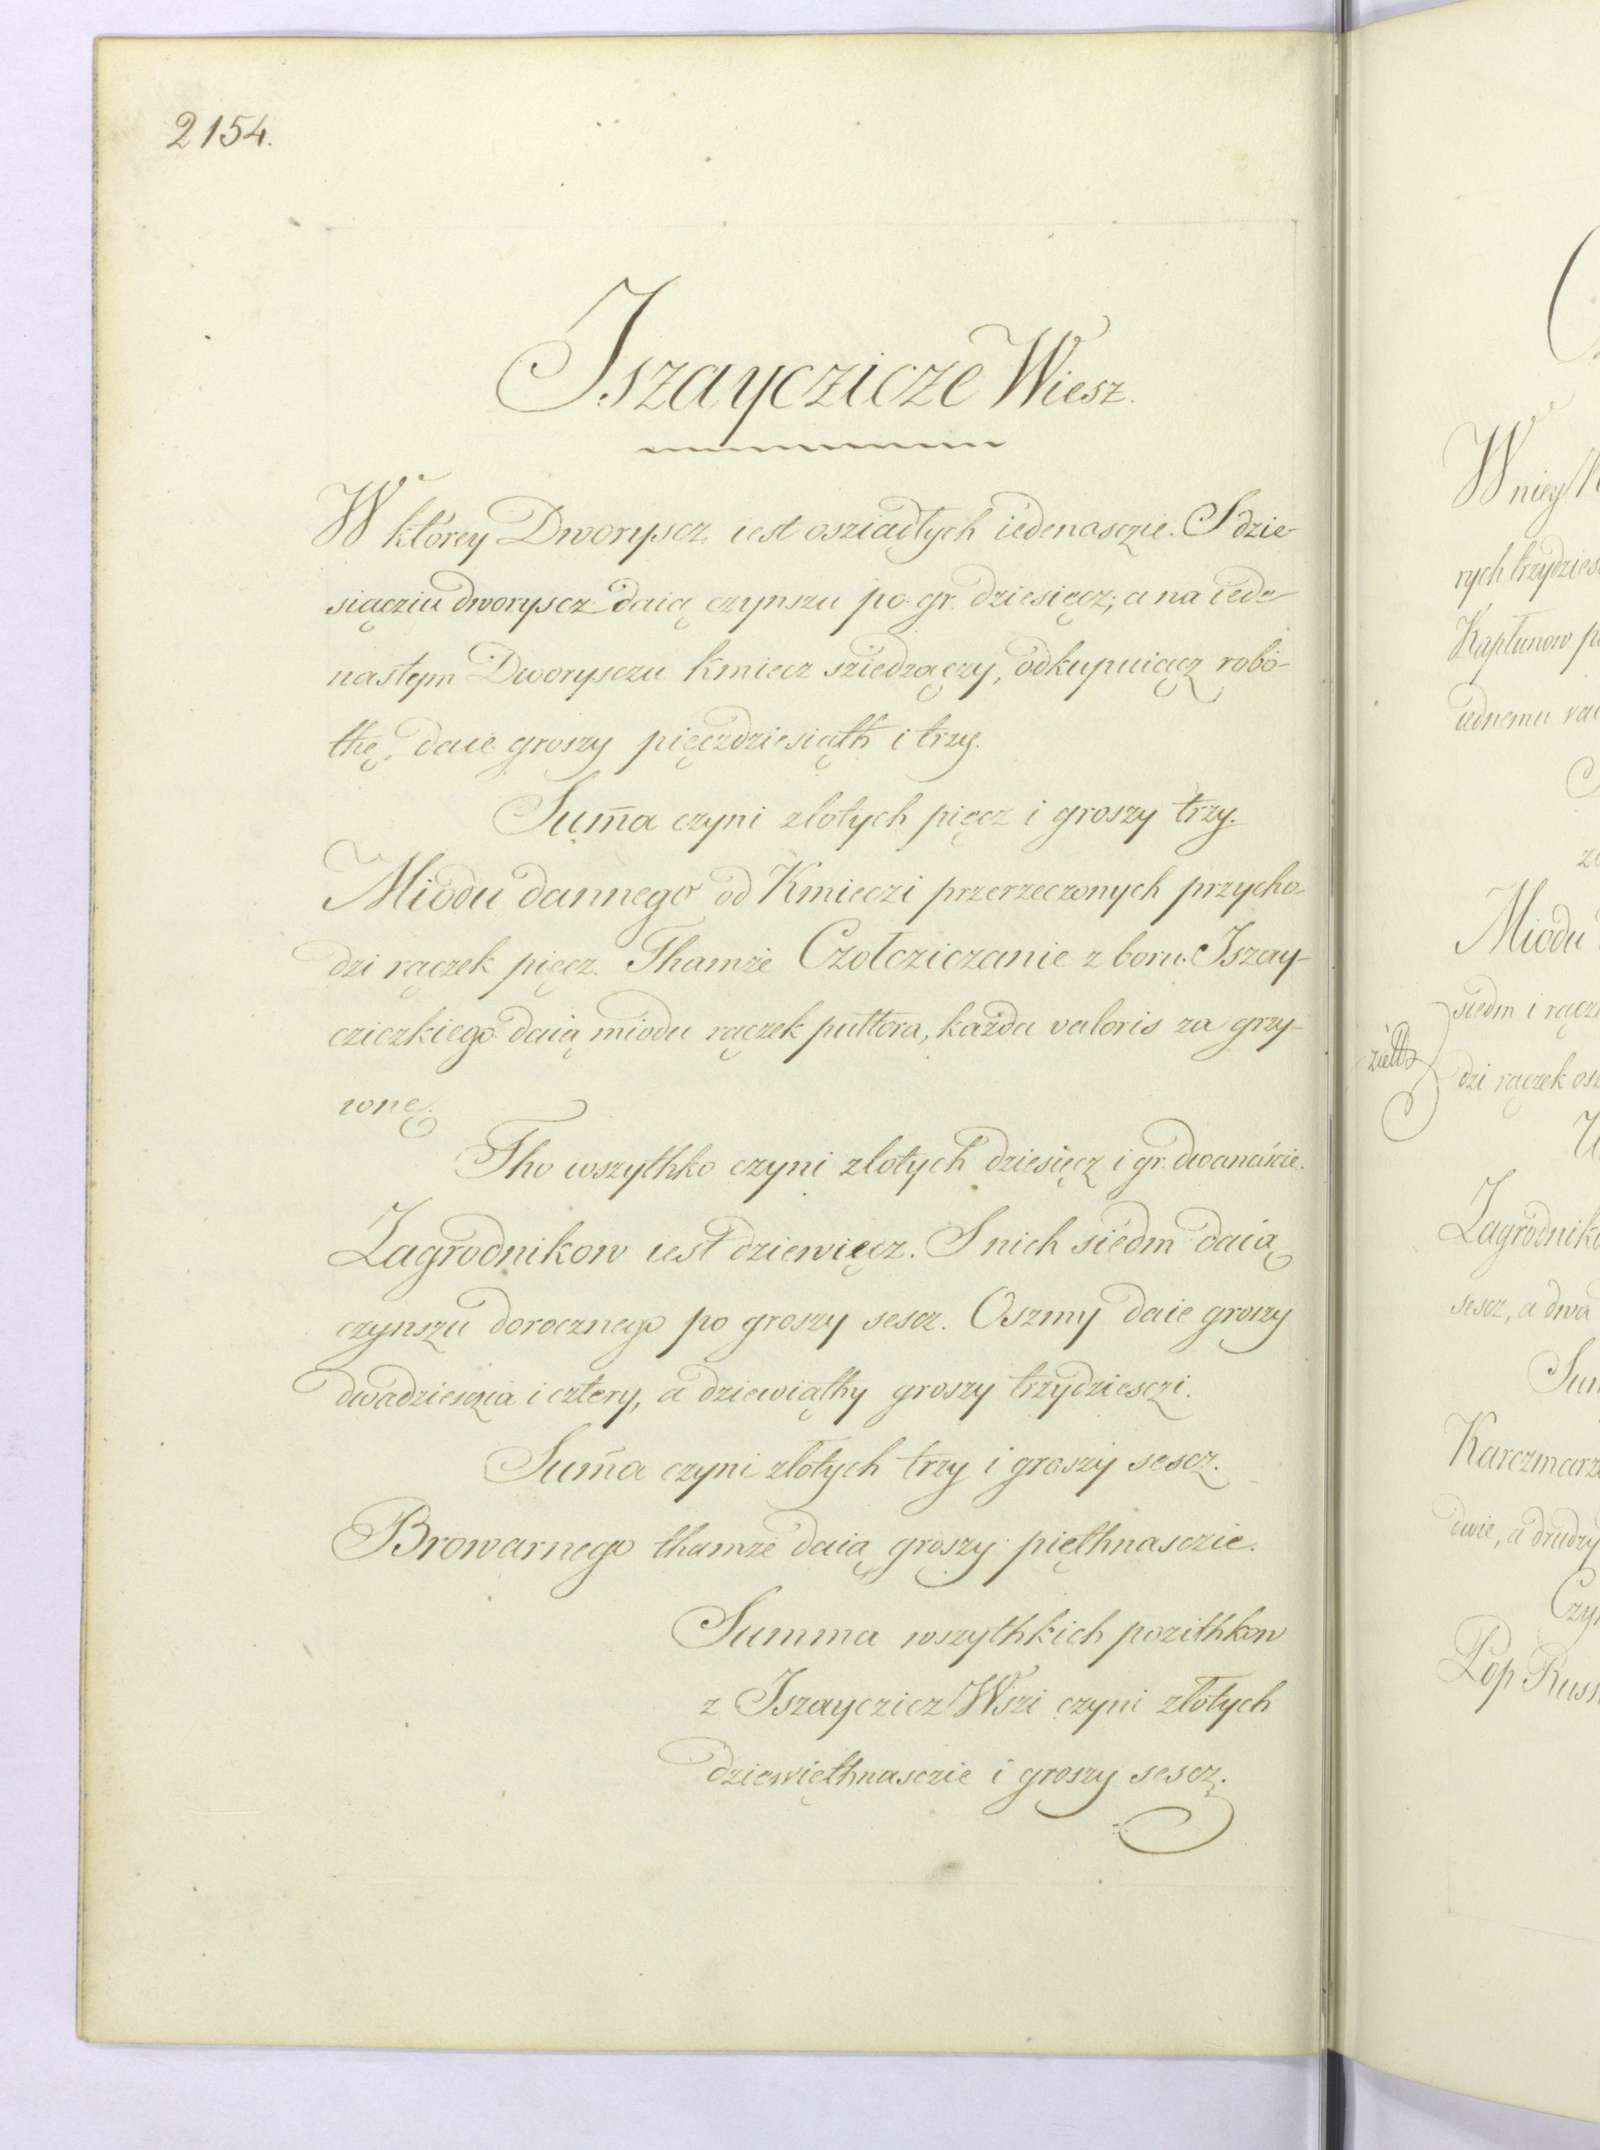 2154.
Iszayczicze Wiesz.
W którey Dworyscz iest osziadłych iedenasczie. S dzie-
siącziu dworyscz daią czynszu po gr. dziesięcz; a na iede-
nastym Dworysczu kmiecz sziedzączy, odkupuiącz robo-
thę, daie groszy pięczdziesiąth i trzy.
Sum̃a czyni zlotych pięcz i groszy trzy.
Miodu dannego od Kmieczi przerzeczonych przycho-
dzi rączek pięcz. Thamże Czołcziczanie z boru Iszay-
cziczkiego daią miodu rączek pułtora, każda valoris za grzy-
wnę.
Tho wszythko czyni zlotych dziesięcz i gr. dwanáście.
Zagrodnikow iest dziewięcz. S nich siedm daią
czynszu dorocznego po groszy sescz. Oszmy daie groszy
dwadziesczia i cztery, a dziewiąthy groszy trzydziesczi.
Sum̃a czyni złotych trzy i groszy sescz.
Browarnego thamże daią groszy piethnasczie.
Summa wszythkich pozithkow
z Iszayczicz Wszi czyni złotych
dziewięthnasczie i groszy sescz.
W niey
rych trzydzies
Kapłunow p
iednemu
Miodu
siedm i rącz
dzi rączek
Zagrodnik
sescz, a dwa
Sum
Karczmarz
dwie, a drudzy
Czy
Pop Rus